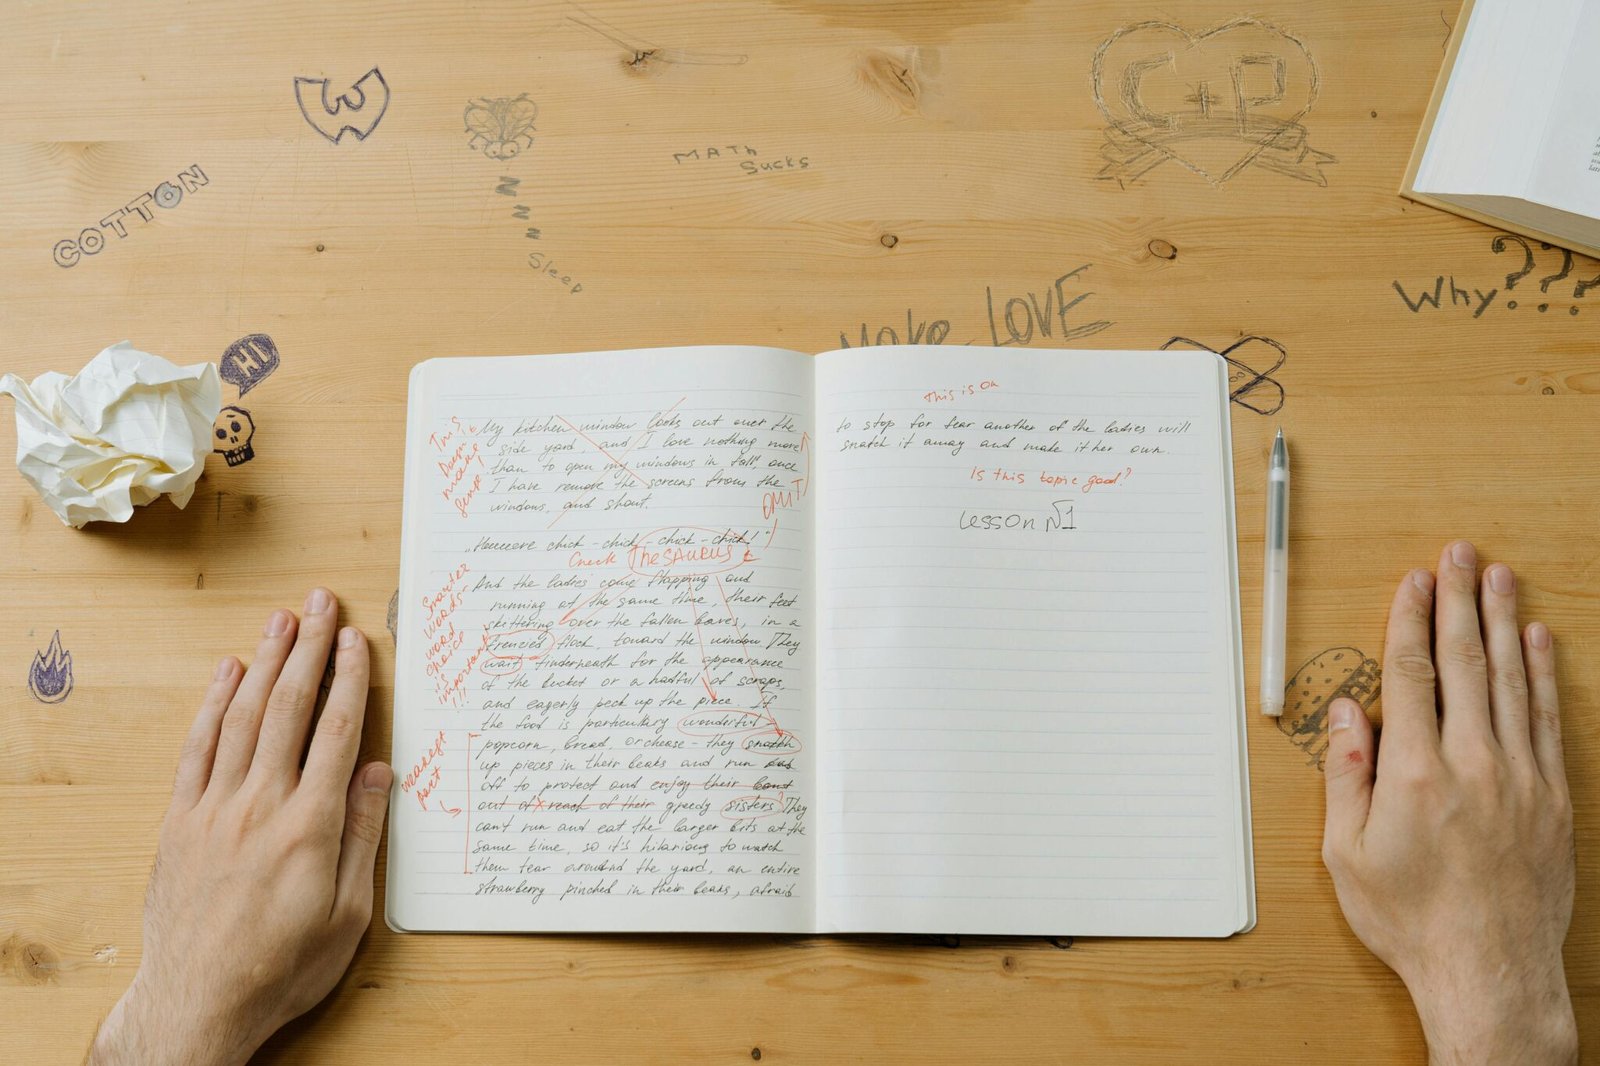 W
C+P
MATH
SUCKS
COTTON
Z
Z
Z
Z
Sleep
Why???
Make LOVE
HI
This
Doesn't
make
sense!
My kitchen window looks out over the
side yard, and I love nothing more
than to open my windows in fall, once
I have remove the screens from the
windows, and shout.
OMIT
„Heeeere chick-chick-chick-chick!"
Check THESAURUS
And the ladies come flapping and
running at the same time, their feet
skittering over the fallen leaves, in a
frenzied flock, toward the window. They
wait underneath for the appearance
of the bucket or a hatful of scraps,
and eagerly peck up the piece. If
the food is particullary wonderful -
popcorn, bread, or cheese - they snatch
up pieces in their beaks and run
off to protect and enjoy their
out of x reach of their greedy sisters? They
can't run and eat the larger bits at the
same time, so it's hilarious to watch
them tear around the yard, an entire
strawberry pinched in their beaks, afraid
Smarter
words.
word
choice
is
important
!!!
weakest
part
This is on
to stop for fear another of the ladies will
snatch it away and make it her own.
Is this topic good?
Lesson №1